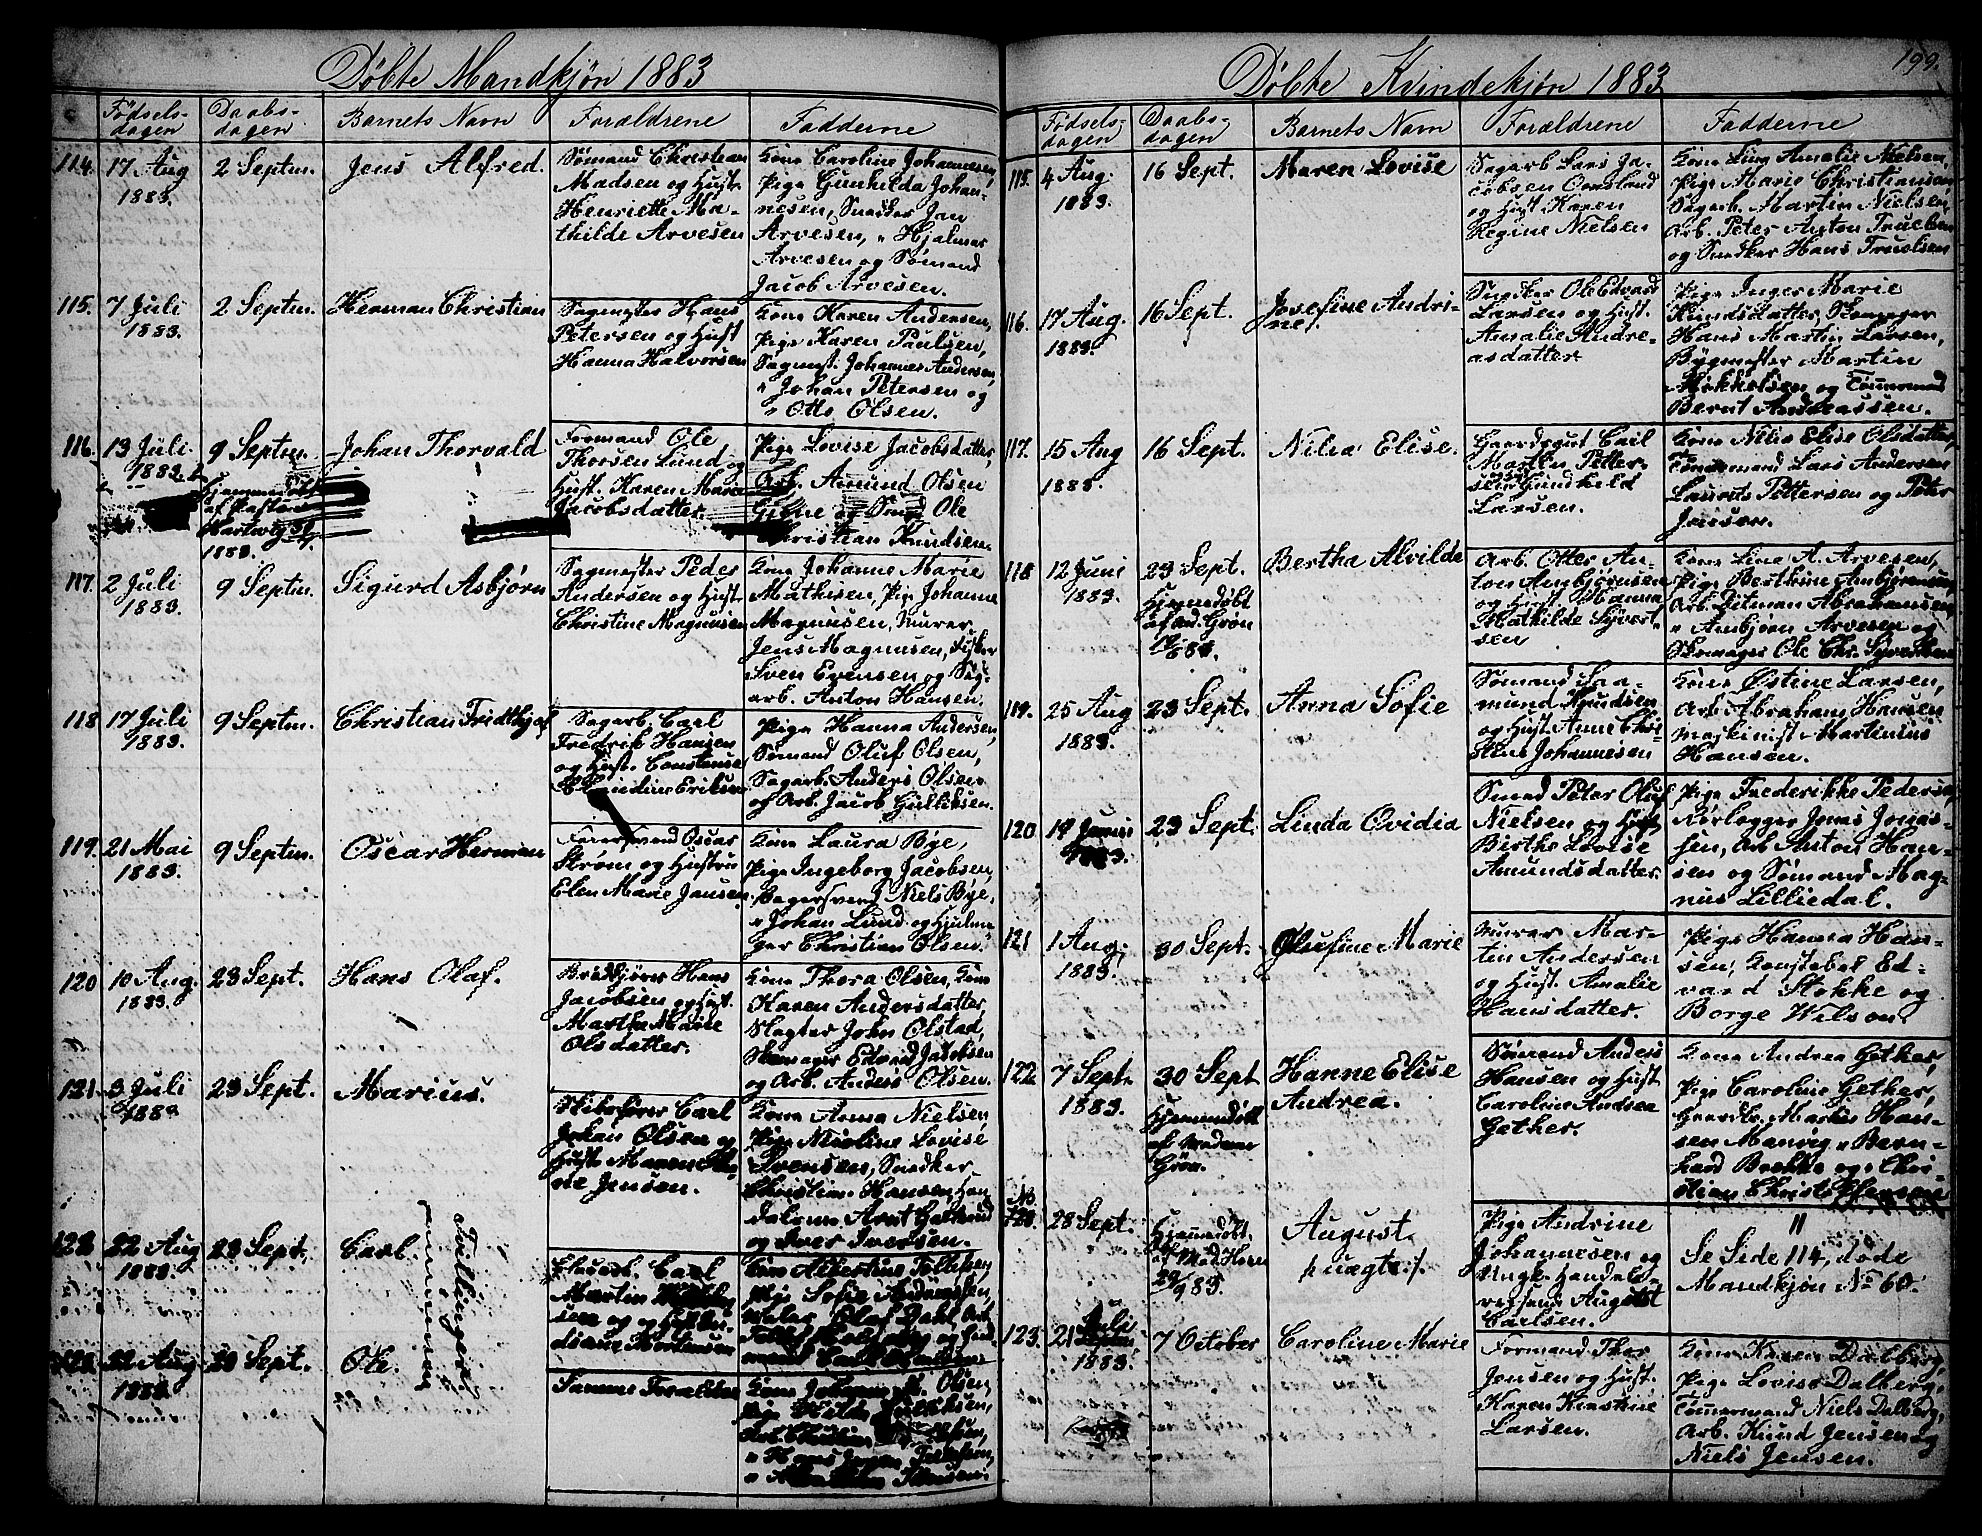 Døbte Mandkjøn 1883
Fødsels-
dagen
Daabs-
dagen
Barnets Navn
Forældrene
Fadderne
114. 17 Aug
1883.
2 Septm.
Jens Alfred.
Sømand Christian
Madsen og Hust.
Henriette Ma-
thilde Arvesen
Kone Caroline Johannesen,
Pige Gunhilda Johan-
nesen, Snedker Jan
Arvesen, " Hjalmar
Arvesen og Sømand
Jacob Arvesen.
115. 7 Juli
1883.
2 Septm.
Herman Christian
Sagmester Hans
Petersen og Hust
Hanna Halvorsen
Kone Karen Andersen,
Pige Karen Paulsen,
Sagmst. Johannes Andersen,
" Johan Petersen og
" Otto Olsen.
116. 13 Juli
1883.
9 Septm.
Hjemmedøbt
af Pastor
Hartwig
1883.
Johan Thorvald
Formand Ole
Thorsen Lund og
Hust. Karen Marie
Jacobsdatter.
Pige Lovise Jacobsdatter,
Arb. Amund Olsen
og Smd Ole
Christian Knudsen.
117. 2 Juli
1883.
9 Septm.
Sigurd Asbjørn
Sagmester Peder
Andersen og Hust
Christine Magnusen
Kone Johanne Marie
Mathisen, Pige Johanne
Magnusen, Murer
Jens Magnusen, Fisker
Sven Evensen og Sag-
arb. Anton Hansen.
118 17 Juli
1883.
9 Septm.
Christian Fridthjof
Sagarb. Carl
Fredrik Hansen
og Hust. Constanse
Eriksen
Pige Hanna Andersen,
Sømand Oluf Olsen,
Sagarb. Anders Olsen
og Arb. Jacob Gulliksen.
119. 21 Mai
1883.
9 Septm.
Oscar Herman
Oscar
Strøm og Hustru
Elen Marie Jansen
Kone Laura Bye,
Pige Ingeborg Jacobsen,
Bagersvend Niels Bye,
" Johan Lund og Hjulma-
ger Christian Olsen.
120 10 Aug.
1883.
23 Sept.
Hans Olaf.
Hans
Jacobsen og Hust.
Marthe Marie
Olsdatter.
Kone Thora Olsen, Kone
Karen Andersdatter,
Slagter John Olstad,
Skomager Edvard Jacobsen
og Arb. Anders Olsen.
121. 3 Juli
1883
23 Sept.
Marius.
Skibsfører Carl
Johan Olsen og
Hust. Maren
Jensen.
Kone Anna Nielsen,
Pige Nicoline Lovise
Svensen, Snedker
Christian Hansen,
og Iver Iversen.
122. 22 Aug
1883.
23 Sept.
Carl.
Tvillinger
sammen
Carl
Martin
og Hust.
Mortensen
Kone Albertine Tollefsen,
Pige Sofie
Maler Olaf Dahl, Arb.
22 Aug
1883.
23 Sept.
Ole.
Samme Forældre
Kone Johanne M. Olsen,
Pige Hilda
" Hans
Døbte Kvindekjøn 1883
199.
Fødsels-
dagen
Daabs-
dagen
Barnets Navn
Forældrene
Fadderne
115. 4 Aug.
1883.
16 Sept.
Maren Lovise
Sagarb Lars Ja-
cobsen Omsland
og Hust Karen
Regine Nielsen
Kone Lina Amalie Nielsen,
Pige Marie Christiansen
Sagarb. Martin Nielsen,
Arb. Peter Anton Truelsen
og Snedker Hans Truelsen
116. 17 Aug.
1883.
16 Sept.
Josefine Andri-
ne.
Snedker Ole Edvard
Larsen og Hust.
Amalie Andre-
asdatter
Pige Inger Marie
Knudsdatter, Skomager
Hans Martin Larsen,
Bygmester Martin
Mikkelsen og Tømmermand
Bernt Andreassen.
117. 15 Aug
1883.
16 Sept.
Nilia Elise.
Gaardsgut Carl
Martin Petter-
sen og Gunhild
Larsen.
Kone Nilia Elise Olsdatter,
Tømmermand Lars Andersen
Laurits Pettersen og Peter
Jensen.
118 12 Juni
1883.
23 Sept.
Hjemmedøbt
af Md. Grøn
Bertha Alvilde
Arb. Otter An-
ton Ambjørnsen
og Hust. Hanna
Mathilde Syvert-
sen
Kone Line A. Arvesen,
Pige Berthine Ambjørnsen,
Arb. Ditman Abrahamsen,
" Ambjørn Arvesen og
Skomager Ole Chr. Syvertsen
119. 25 Aug
1883.
23 Sept.
Anna Sofie
Sømand Saa-
mund Knudsen
og Hust. Anne Chri-
stine Johannesen
Kone Østine Larsen,
Arb. Abraham Hansen
Maskinist Martinius
Hansen.
120 19 Juni
1883.
23 Sept.
Linda Ovidia
Smed Peter Oluf
Nielsen og Hust
Berthe Lovise
Amundsdatter.
Pige Frederikke Pedersen,
Rørlægger Jonas Jonas-
sen, Arb Anton Han-
sen og Sømand Mag-
nus Lilliedal.
121 1 Aug.
1883.
30 Sept.
Olufine Marie
Murer Mar-
tin Andersen
og Hust. Amalie
Hansdatter.
Pige Hanna Han-
sen, Konstabel Ed-
vard Stokke og
Borge Wilson.
122 7 Sept.
1883.
30 Sept
Hjemmedøbt
af Madame
Grøn.
Hanne Elise
Andrea.
Sømand Anders
Hansen og Hust
Caroline Andrea
Gether.
Kone Andrea Gether,
Pige Caroline Gether,
Gaardbr. Mathis Han-
sen Manvig, " Bern-
hard Brekke og " Chri-
stian Christophersen
No
120. 28 Sept.
Hjemmedøbt
af Mad Horn
29/9 83.
August
Pige Andrine
Johannesen og
Ungk. Handels-
reisende August
Carlsen.
"
Se Side 114, døde
Mandkjøn No 60.
123. 21 Juli
1883.
7 October
Caroline Marie
Formand Thor
Jensen og Hust.
Karen Kirstine
Larsen.
Kone Karen Dalberg,
Pige Lovise Dalberg,
Tømmermand Niels Dalberg,
Arb. Knud Jensen og
Niels Jensen.